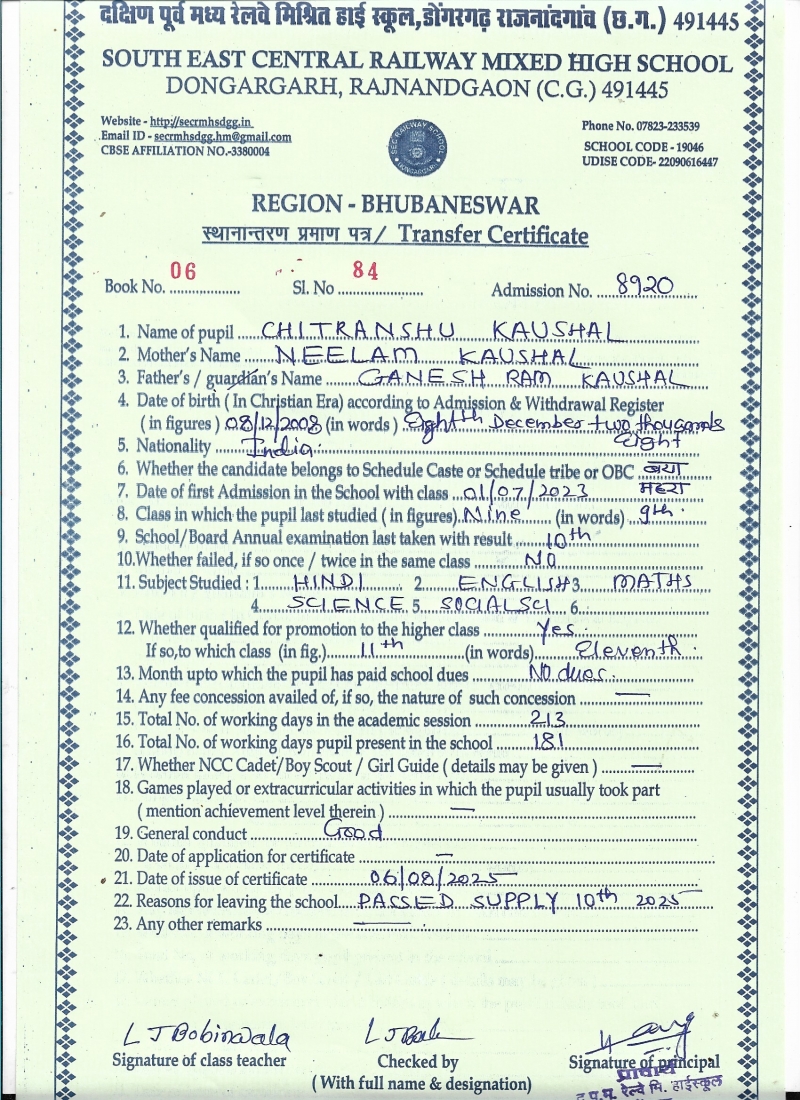 दक्षिण पूर्व मध्य रेलवे मिश्रित हाई स्कूल,डोंगरगढ़ राजनांदगांव (छ.ग.) 491445
SOUTH EAST CENTRAL RAILWAY MIXED HIGH SCHOOL
DONGARGARH, RAJNANDGAON (C.G.) 491445
Website - http://secrmhsdgg.in
Email ID - secrmhsdgg.hm@gmail.com
CBSE AFFILIATION NO.-3380004
SEC RAILWAY SCHOOL
DONGARGARH
Phone No. 07823-233539
SCHOOL CODE - 19046
UDISE CODE- 22090616447
REGION - BHUBANESWAR
स्थानान्तरण प्रमाण पत्र / Transfer Certificate
Book No. 06 Sl. No 84 Admission No. 8920
1. Name of pupil CHITRANSHU KAUSHAL
2. Mother's Name NEELAM KAUSHAL
3. Father's / guardian's Name GANESH RAM KAUSHAL
4. Date of birth ( In Christian Era) according to Admission & Withdrawal Register
(in figures ) 08/12/2008 (in words ) Eightth December two thousands
Eight
5. Nationality India
6. Whether the candidate belongs to Schedule Caste or Schedule tribe or OBC
7. Date of first Admission in the School with class 01/07/2023
8. Class in which the pupil last studied ( in figures) Nine (in words) 9th
9. School/Board Annual examination last taken with result 10th
10.Whether failed, if so once / twice in the same class NO
11. Subject Studied : 1. HINDI 2. ENGLISH 3. MATHS
4. SCIENCE 5. SOCIAL SCI 6.
12. Whether qualified for promotion to the higher class Yes
If so,to which class (in fig.) 11th (in words) Eleventh
13. Month upto which the pupil has paid school dues No dues
14. Any fee concession availed of, if so, the nature of such concession —
15. Total No. of working days in the academic session 213
16. Total No. of working days pupil present in the school 181
17. Whether NCC Cadet/Boy Scout / Girl Guide ( details may be given ) —
18. Games played or extracurricular activities in which the pupil usually took part
( mention achievement level therein ) —
19. General conduct Good
20. Date of application for certificate —
21. Date of issue of certificate 06/08/2025
22. Reasons for leaving the school PASSED SUPPLY 10th 2025
23. Any other remarks —
L J Bobinwala
Signature of class teacher
Checked by
(With full name & designation)
Signature of principal
प्राचार्य
द.पू.म. रेल्वे मि. हाईस्कूल